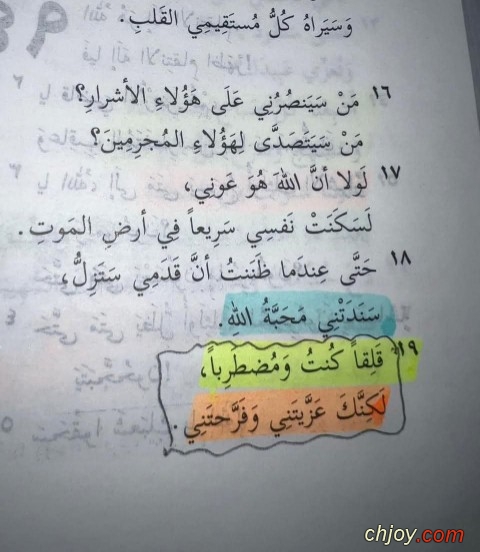 وَسَيَرَاهُ كُلُّ مُستَقِيمِي القَلبِ.
١٦ مَنْ سَيَنصُرُنِي عَلَى هَؤُلَاءِ الأشرارِ؟
مَنْ سَيَتَصَدَّى لِهَؤُلَاءِ المُجرِمِينَ؟
١٧ لَولا أنَّ اللهَ هُوَ عَونِي،
لَسَكَنَتْ نَفسِي سَرِيعاً فِي أرضِ المَوتِ.
١٨ حَتَّى عِندَما ظَنَنتُ أنَّ قَدَمِي سَتَزِلُّ،
سَنَدَتْنِي مَحَبَّةُ اللهِ.
١٩ قَلِقاً كُنتُ وَمُضطَرِباً،
لَكِنَّكَ عَزَّيتَنِي وَفَرَّحتَنِي.
chjoy.com